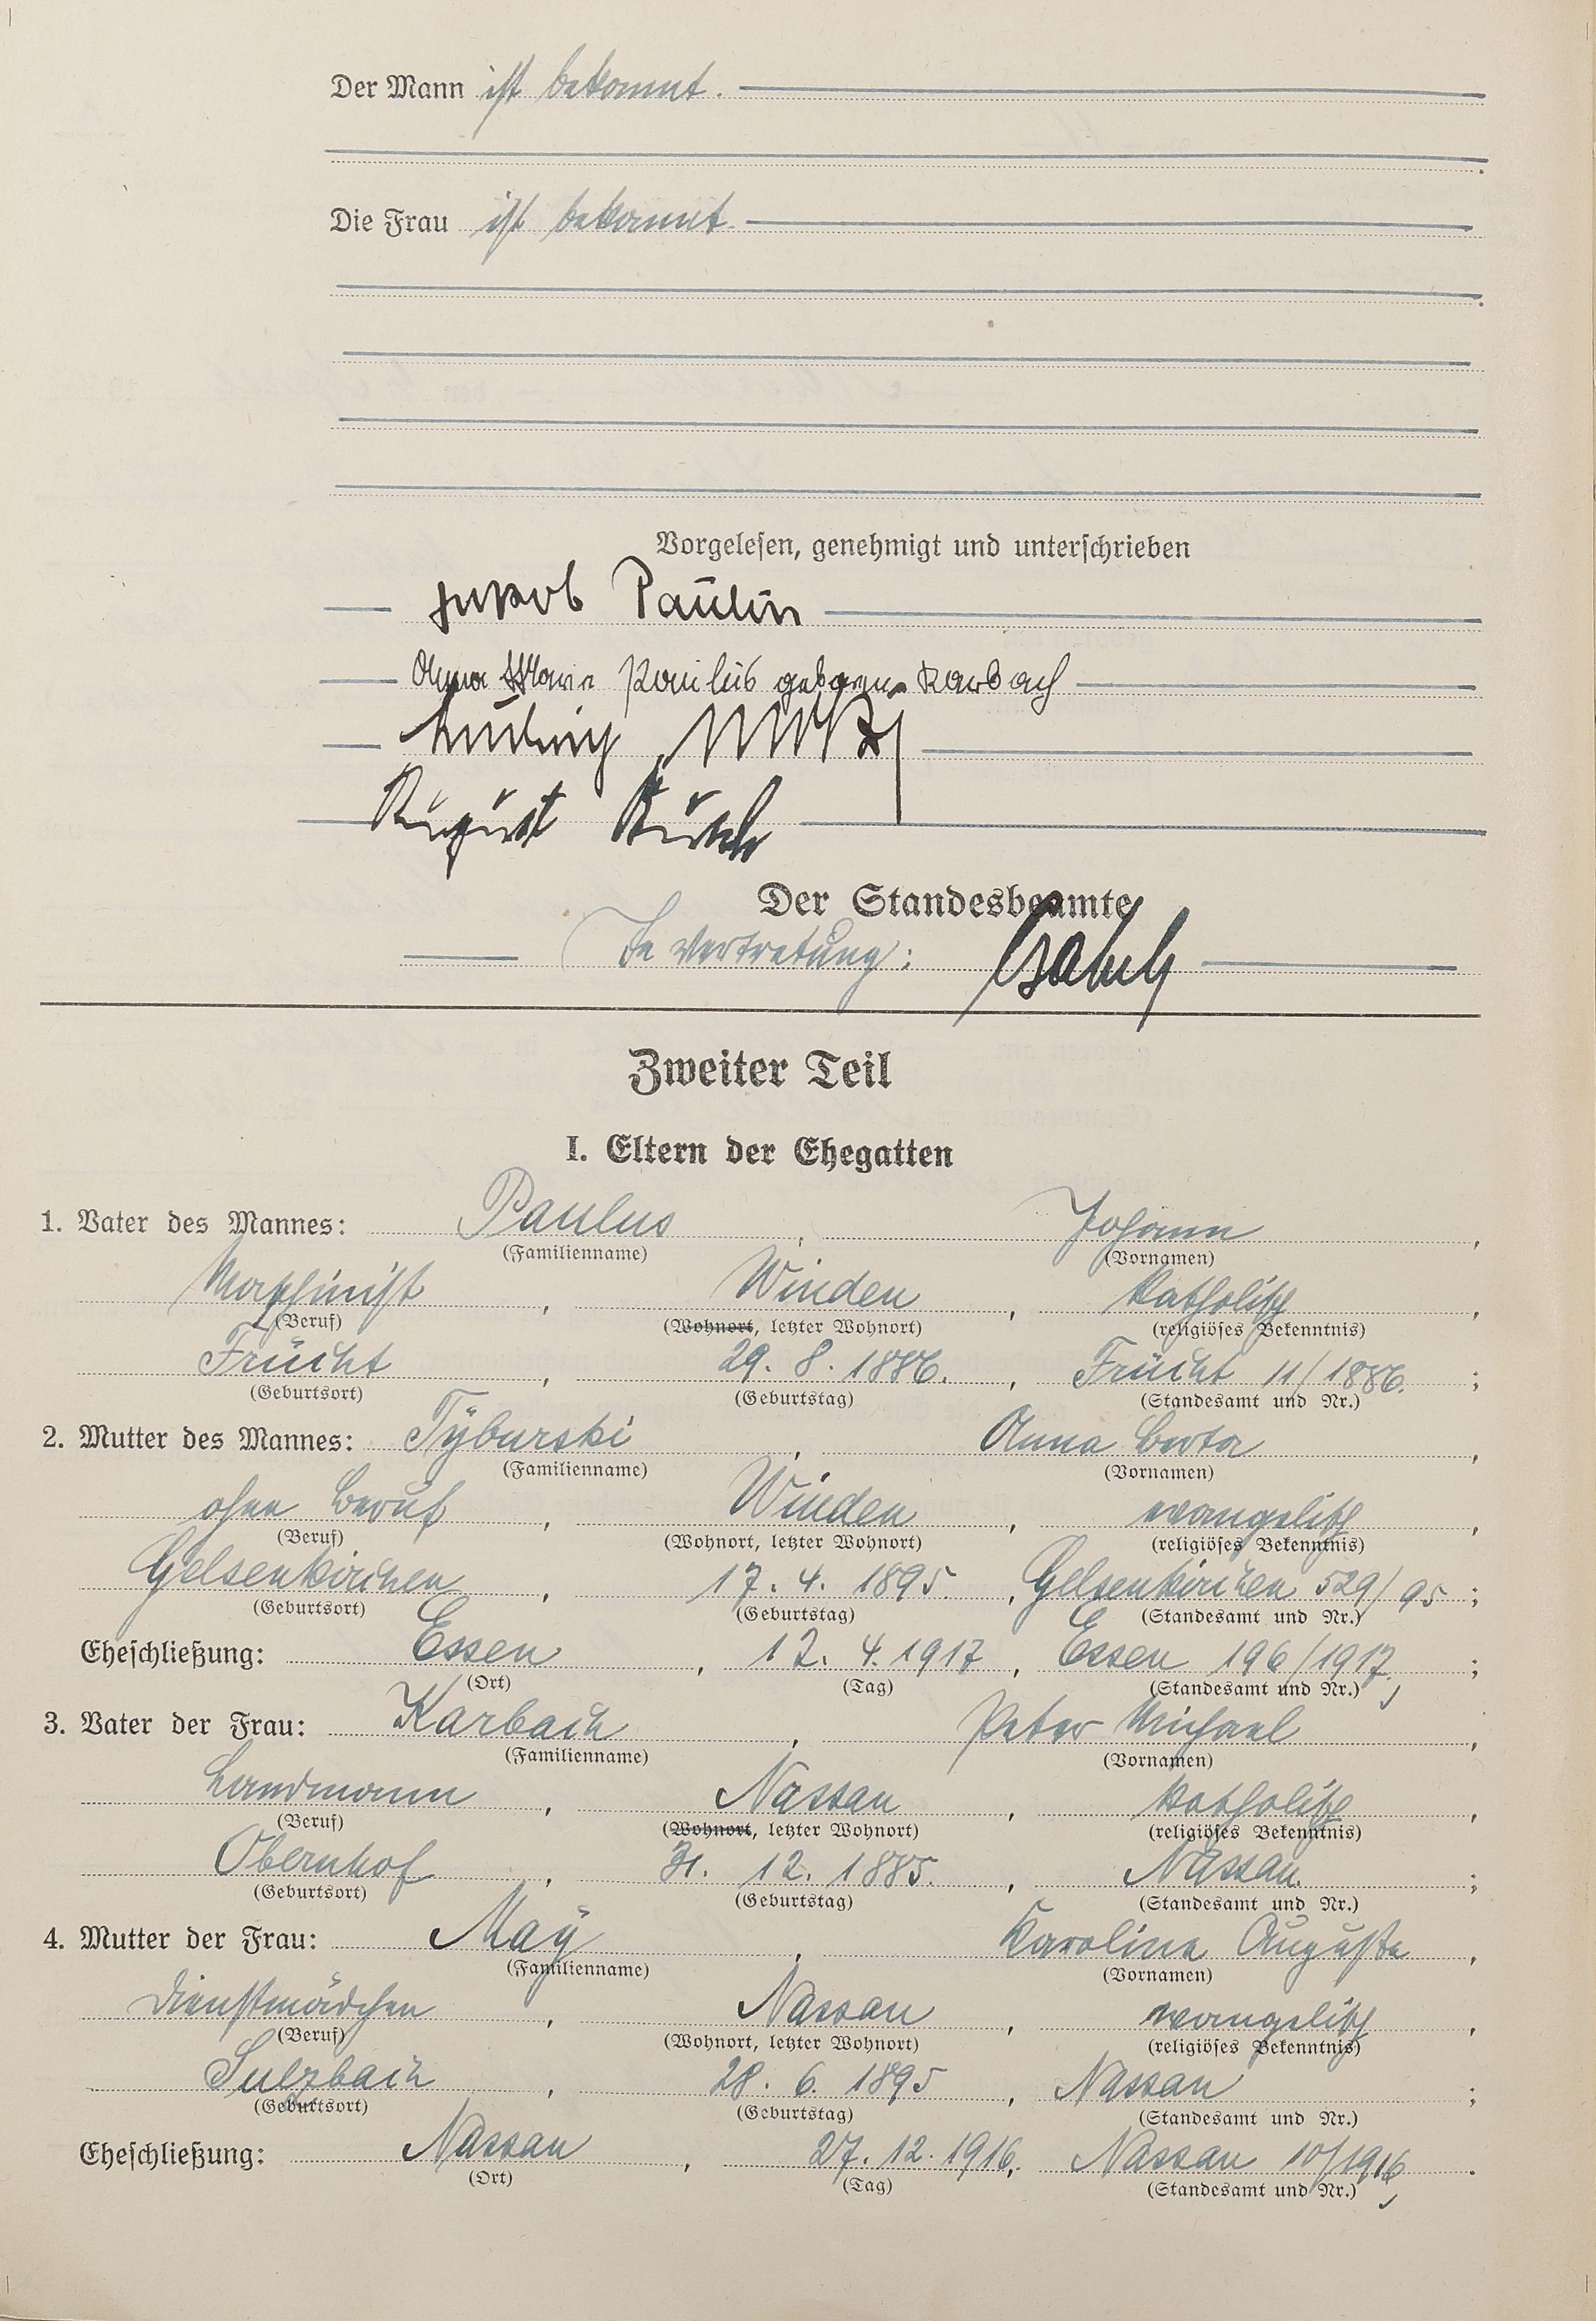 Der Mann ist bekannt.
Die Frau ist bekannt.
Vorgelesen, genehmigt und unterschrieben
Jakob Paulus
Anna Maria Paulus geborene Karbach
Ludwig
August
Der Standesbeamte
In Vertretung:
Zweiter Teil
I. Eltern der Ehegatten
1. Vater des Mannes: Paulus, Johann,
(Familienname) (Vornamen)
Maschinist, Winden, katholisch,
(Beruf) (Wohnort, letzter Wohnort) (religiöses Bekenntnis)
Frücht, 29. 8. 1886., Frücht 11/1886.;
(Geburtsort) (Geburtstag) (Standesamt und Nr.)
2. Mutter des Mannes: Tÿburski, Anna Berta,
(Familienname) (Vornamen)
ohne Beruf, Winden, evangelisch,
(Beruf) (Wohnort, letzter Wohnort) (religiöses Bekenntnis)
Gelsenkirchen, 17. 4. 1895., Gelsenkirchen 529/95;
(Geburtsort) (Geburtstag) (Standesamt und Nr.)
Eheschließung: Essen, 12. 4. 1917, Essen 196/1917,;
(Ort) (Tag) (Standesamt und Nr.)
3. Vater der Frau: Karbach, Peter Michael,
(Familienname) (Vornamen)
Landmann, Nassau, katholisch,
(Beruf) (Wohnort, letzter Wohnort) (religiöses Bekenntnis)
Obernhof, 31. 12. 1885., Nassau.;
(Geburtsort) (Geburtstag) (Standesamt und Nr.)
4. Mutter der Frau: Maÿ, Karoline Auguste,
(Familienname) (Vornamen)
Dienstmädchen, Nassau, evangelisch,
(Beruf) (Wohnort, letzter Wohnort) (religiöses Bekenntnis)
Sulzbach, 28. 6. 1895, Nassau;
(Geburtsort) (Geburtstag) (Standesamt und Nr.)
Eheschließung: Nassau, 27. 12. 1916,. Nassau 10/1916,.
(Ort) (Tag) (Standesamt und Nr.)